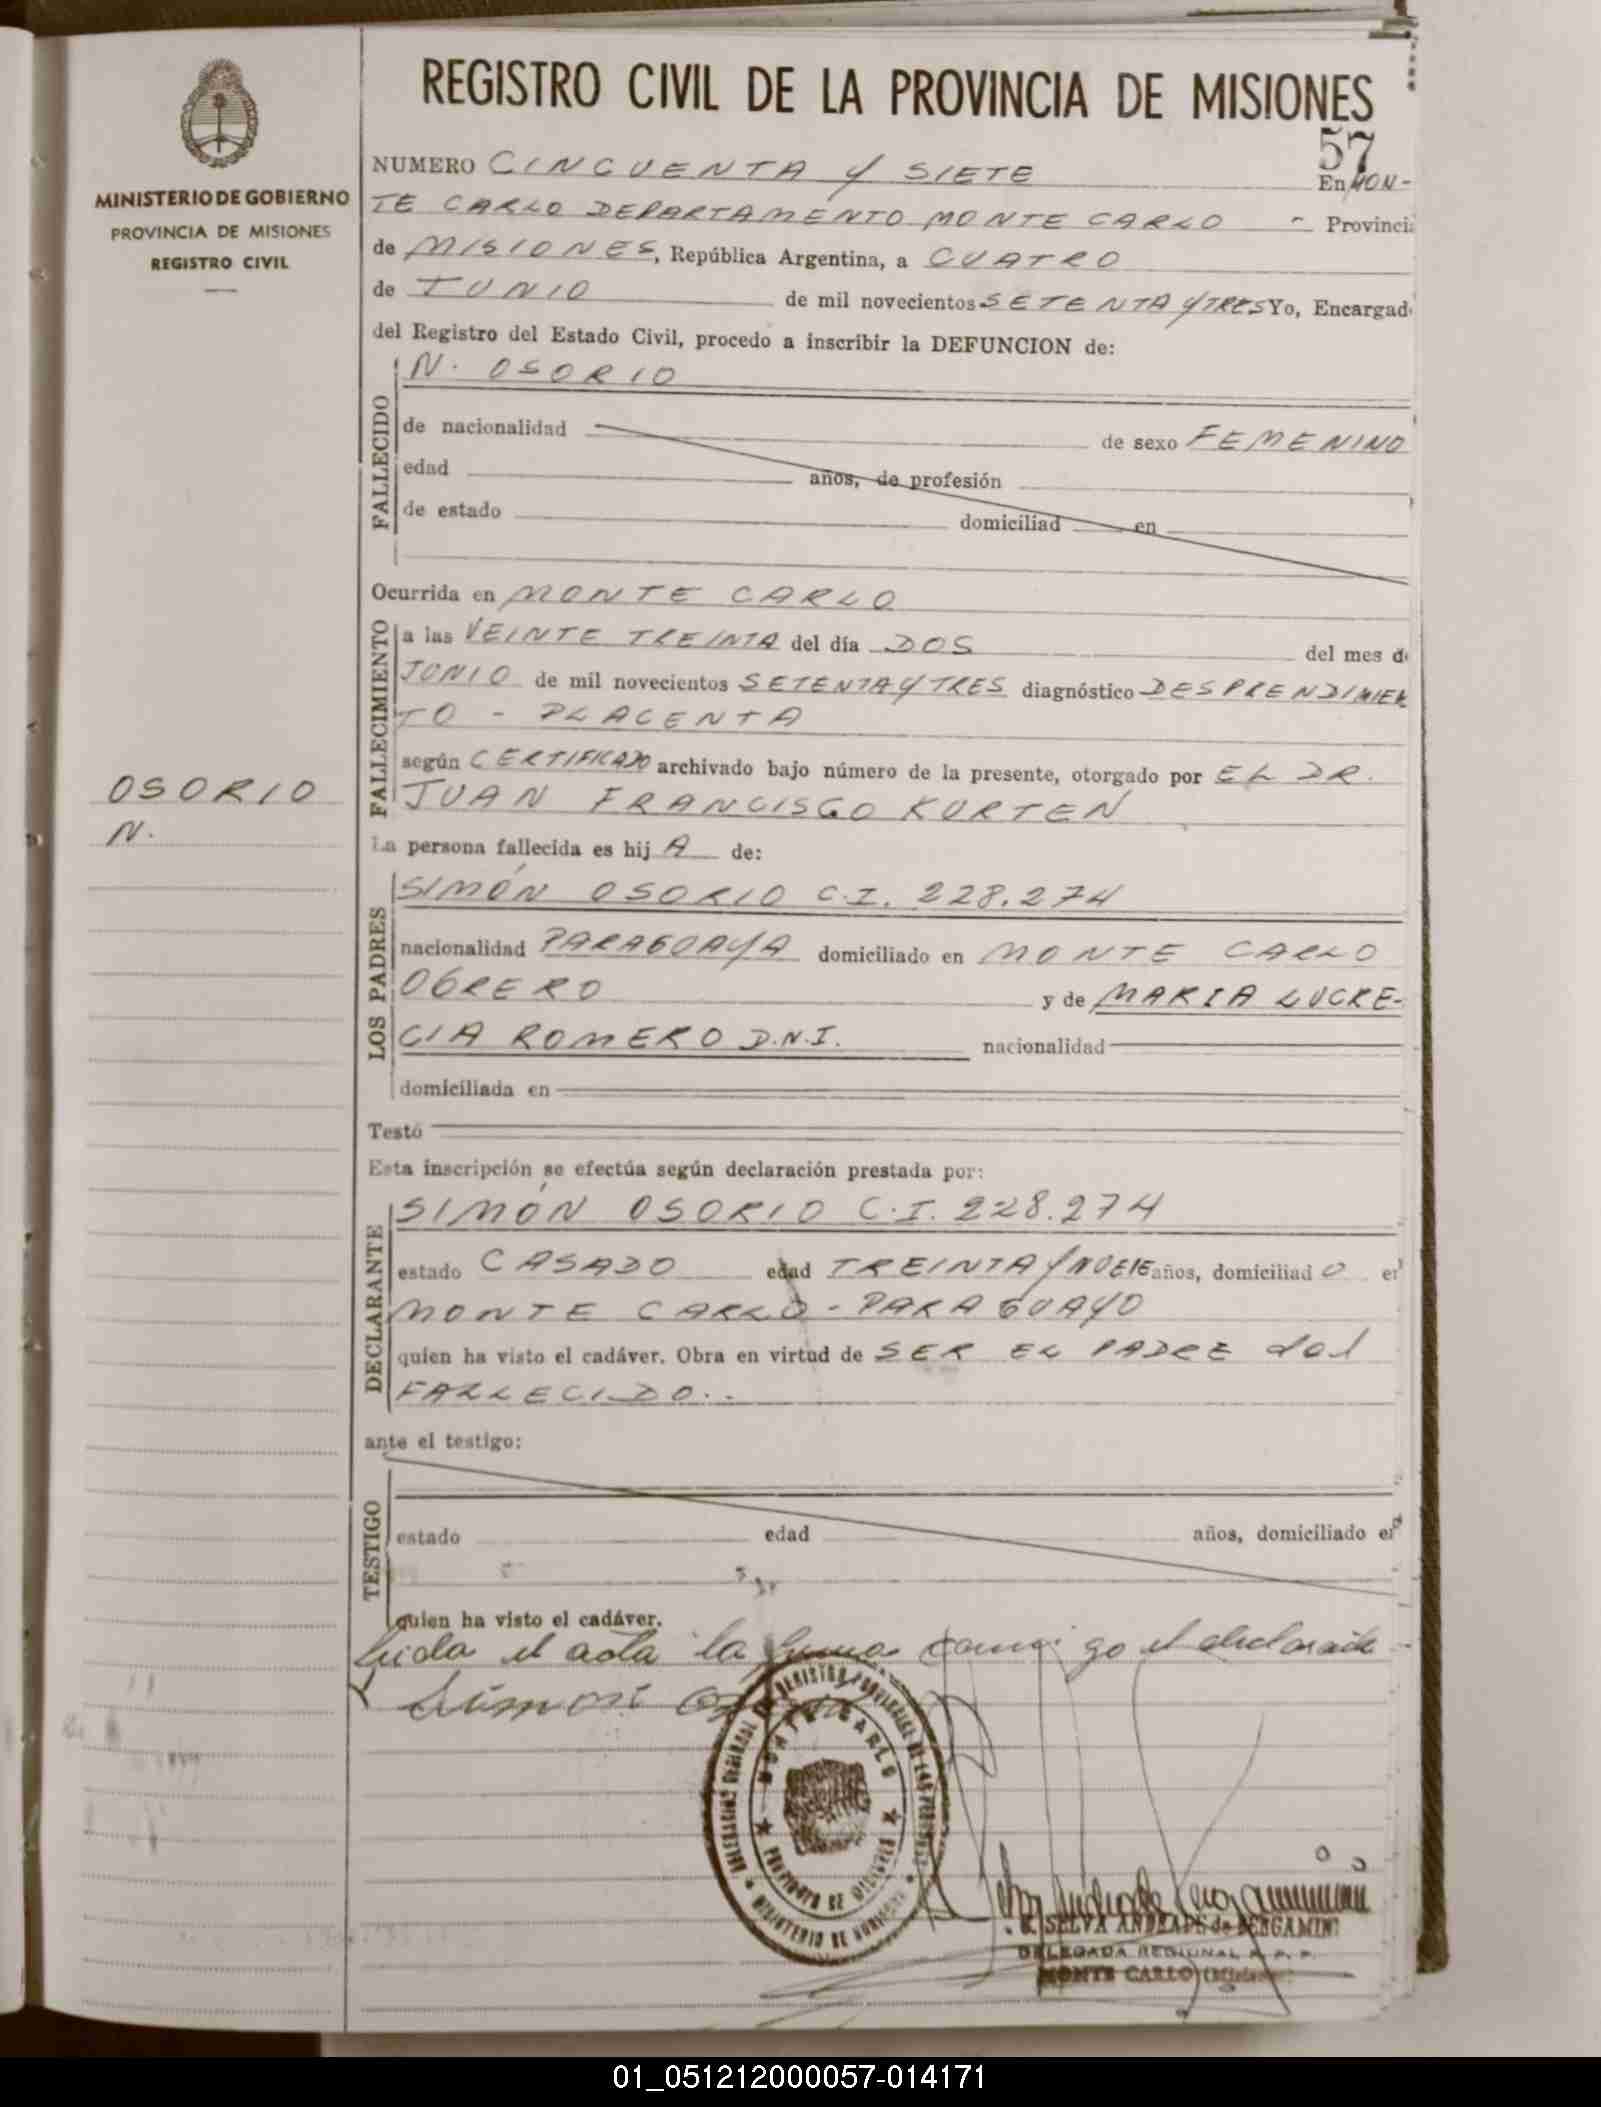 REGISTRO CIVIL DE LA PROVINCIA DE MISIONES
MINISTERIO DE GOBIERNO
PROVINCIA DE MISIONES
REGISTRO CIVIL
57
NUMERO CINCUENTA Y SIETE En MON-
TE CARLO DEPARTAMENTO MONTE CARLO - Provincia
de MISIONES, República Argentina, a CUATRO
de JUNIO de mil novecientos SETENTA Y TRES Yo, Encargad
del Registro del Estado Civil, procedo a inscribir la DEFUNCION de:
FALLECIDO
N. OSORIO
de nacionalidad de sexo FEMENINO
edad años, de profesión
de estado domiciliad en
Ocurrida en MONTE CARLO
FALLECIMIENTO
a las VEINTE TREINTA del día DOS del mes d
JUNIO de mil novecientos SETENTA Y TRES diagnóstico DESPRENDIMIEN
TO - PLACENTA
según CERTIFICADO archivado bajo número de la presente, otorgado por EL DR.
JUAN FRANCISCO KURTEN
OSORIO
N.
La persona fallecida es hij A de:
LOS PADRES
SIMÓN OSORIO C.I. 228.274
nacionalidad PARAGUAYA domiciliado en MONTE CARLO
OBRERO y de MARIA LUCRE-
CIA ROMERO D.N.I. nacionalidad
domiciliada en
Testó
Esta inscripción se efectúa según declaración prestada por:
DECLARANTE
SIMÓN OSORIO C.I. 228.274
estado CASADO edad TREINTA Y NUEVE años, domiciliad O en
MONTE CARLO - PARAGUAYO
quien ha visto el cadáver. Obra en virtud de SER EL PADRE del
FALLECIDO..
ante el testigo:
TESTIGO
estado edad años, domiciliado en
quien ha visto el cadáver.
Leida el acta la firma con migo el declarante
Simon
MONTE CARLO
PROVINCIA DE MISIONES
MINISTERIO DE GOBIERNO
SELVA ANDRADE de BERGAMINI
DELEGADA REGIONAL R. P. P.
MONTE CARLO (Misiones)
01_051212000057-014171